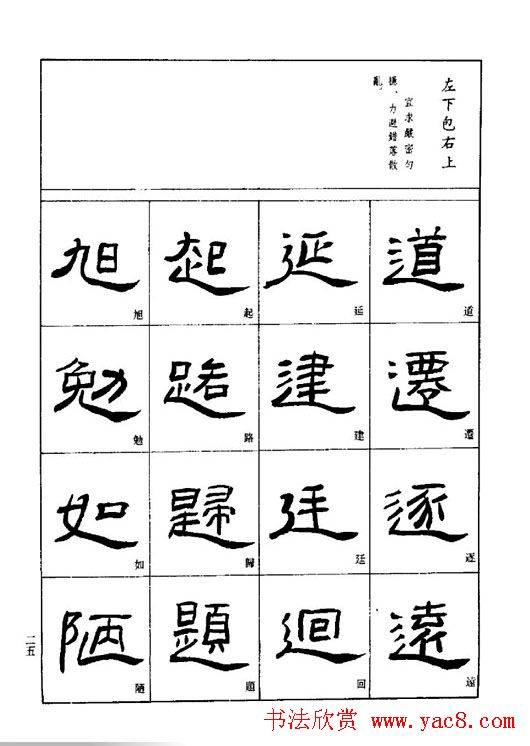 左下包右上
宜求嚴密勻
穩、力避錯落散
亂。
道
道
遷
遷
逐
逐
遠
遠
延
延
建
建
廷
廷
迴
回
起
起
路
路
歸
歸
題
題
旭
旭
勉
勉
如
如
陋
陋
二五
书法欣赏 www.yac8.com